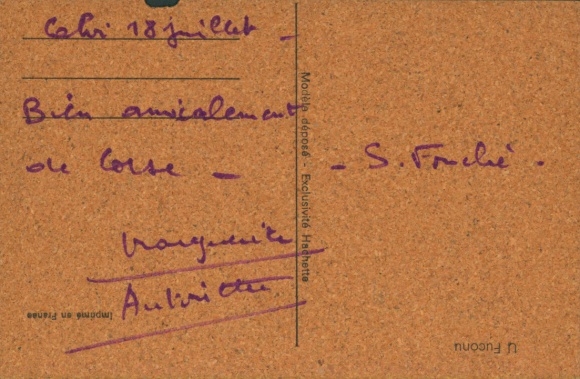 Calvi 18 juillet -
Bien amicalement
de Corse -
- S. Fouché -
Marguerite
Modèle déposé - Exclusivité Hachette
Imprimé en France
U Fuconu